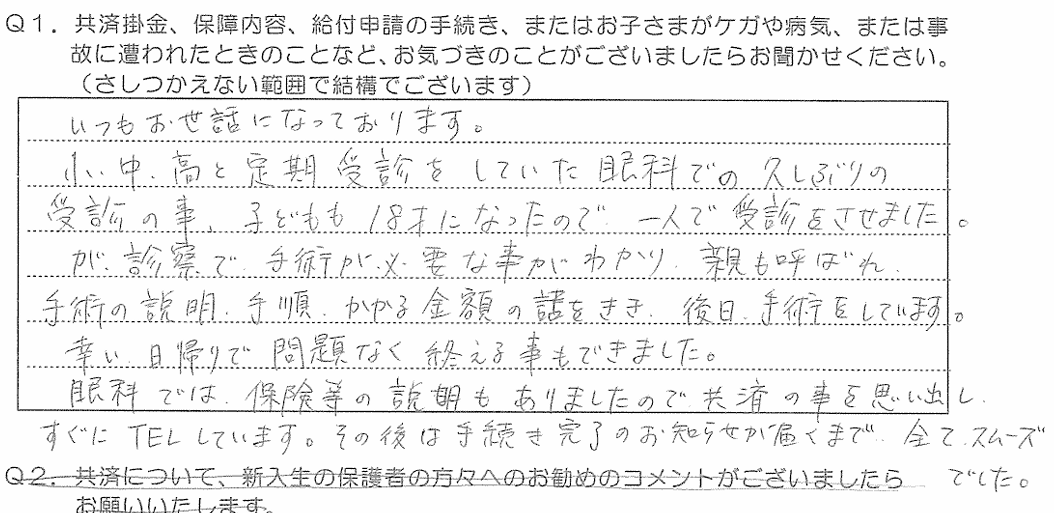 Q1. 共済掛金、保障内容、給付申請の手続き、またはお子さまがケガや病気、または事
故に遭われたときのことなど、お気づきのことがございましたらお聞かせください。
（さしつかえない範囲で結構でございます）
いつもお世話になっております。
小、中、高と定期受診をしていた眼科での久しぶりの
受診の事、子どもも18才になったので、一人で受診をさせました。
が、診察で、手術が必要な事がわかり、親も呼ばれ、
手術の説明、手順、かかる金額の話をきき、後日、手術をしています。
幸い、日帰りで問題なく終える事もできました。
眼科では、保険等の説明もありましたので、共済の事を思い出し、
すぐにTELしています。その後は手続き完了のお知らせが届くまで、全てスムーズ
でした。
Q2. 共済について、新入生の保護者の方々へのお勧めのコメントがございましたら
お願いいたします。